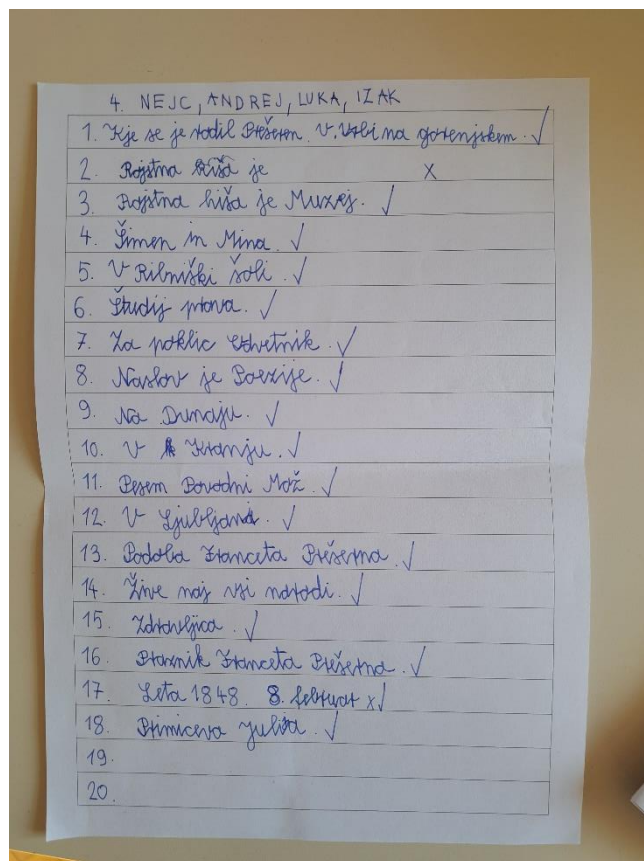 4. NEJC, ANDREJ, LUKA, IZAK
1. Kje se je rodil Prešeren. V. Vrbi na gorenjskem. ✓
2. Rojstna hiša je X
3. Rojstna hiša je Muzej. ✓
4. Šimen in Mina. ✓
5. V Ribniški šoli. ✓
6. Študij prava. ✓
7. Za poklic odvetnik. ✓
8. Naslov je Poezije. ✓
9. Na Dunaju. ✓
10. V Kranju. ✓
11. Pesem Povodni Mož. ✓
12. V Ljubljani. ✓
13. Podoba Franceta Prešerna. ✓
14. Žive naj vsi narodi. ✓
15. Zdravljica. ✓
16. Praznik Franceta Prešerna. ✓
17. Leta 1848. 8. februar x✓
18. Primiceva Julija. ✓
19.
20.